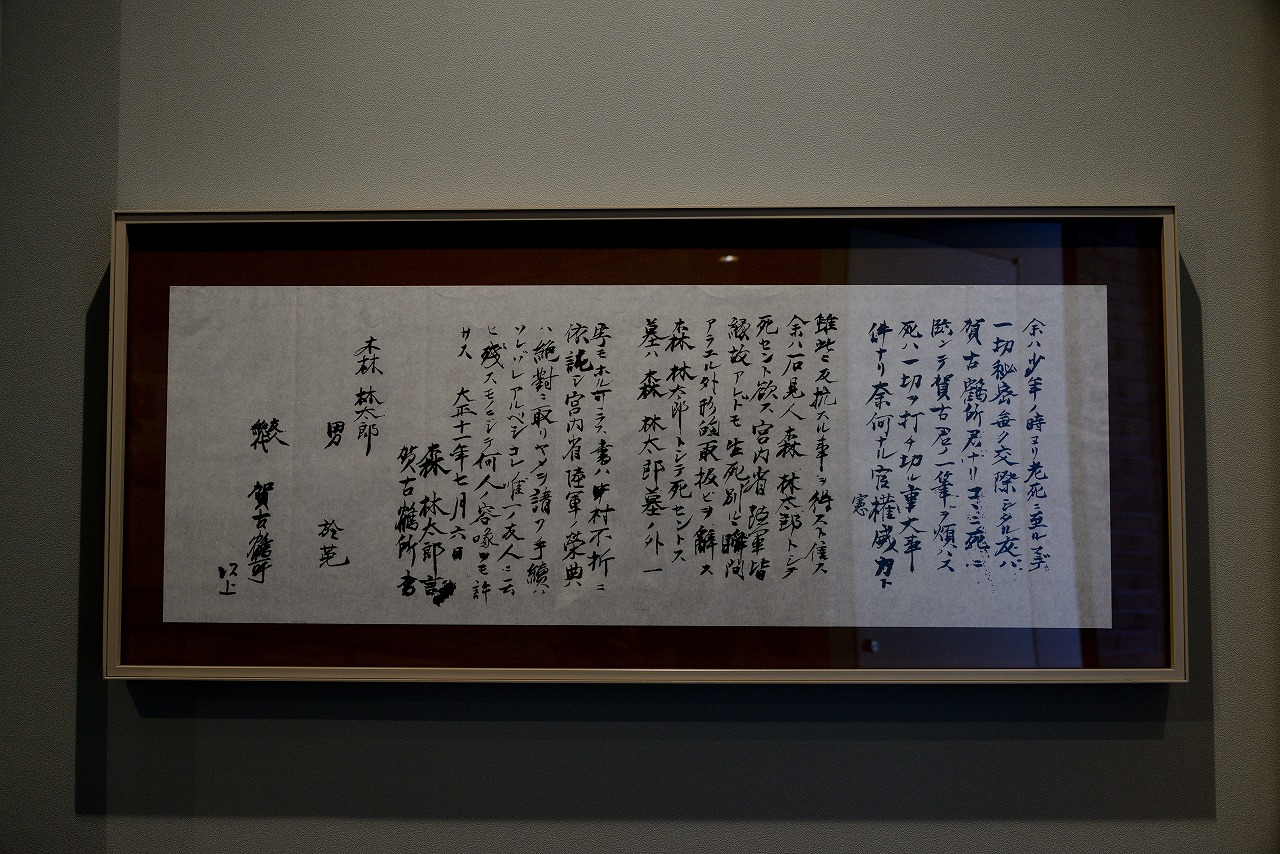 余ハ少年ノ時ヨリ老死ニ至ルマデ
一切秘密無ク交際シタル友ハ
賀古鶴所君ナリ コヽニ死ニ
臨ンテ賀古君ノ一筆ヲ煩ハス
死ハ一切ヲ打チ切ル重大事
件ナリ 奈何ナル官憲威力ト
雖此ニ反抗スル事ヲ得スト信ス
余ハ石見人 森 林太郎トシテ
死セント欲ス 宮内省陸軍皆
縁故アレドモ 生死別ルヽ瞬間
アラユル外形的取扱ヒヲ辭ス
森 林太郎トシテ死セントス
墓ハ 森 林太郎墓ノ外一
字モホル可ラス 書ハ中村不折ニ
依託シ宮内省陸軍ノ榮典
ハ絶對ニ取リヤメヲ請フ 手續ハ
ソレゾレアルベシ コレ唯一ノ友人ニ云
ヒ殘スモノニシテ何人ノ容喙ヲモ許
サス 大正十一年七月六日
森 林太郎 言
賀古鶴所 書
森 林太郎
男 於菟
賀古鶴所
以上